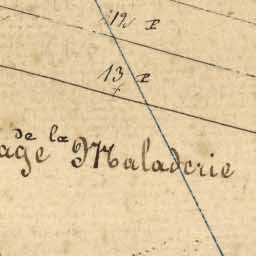 12 P
13 P
de la
age Maladerie